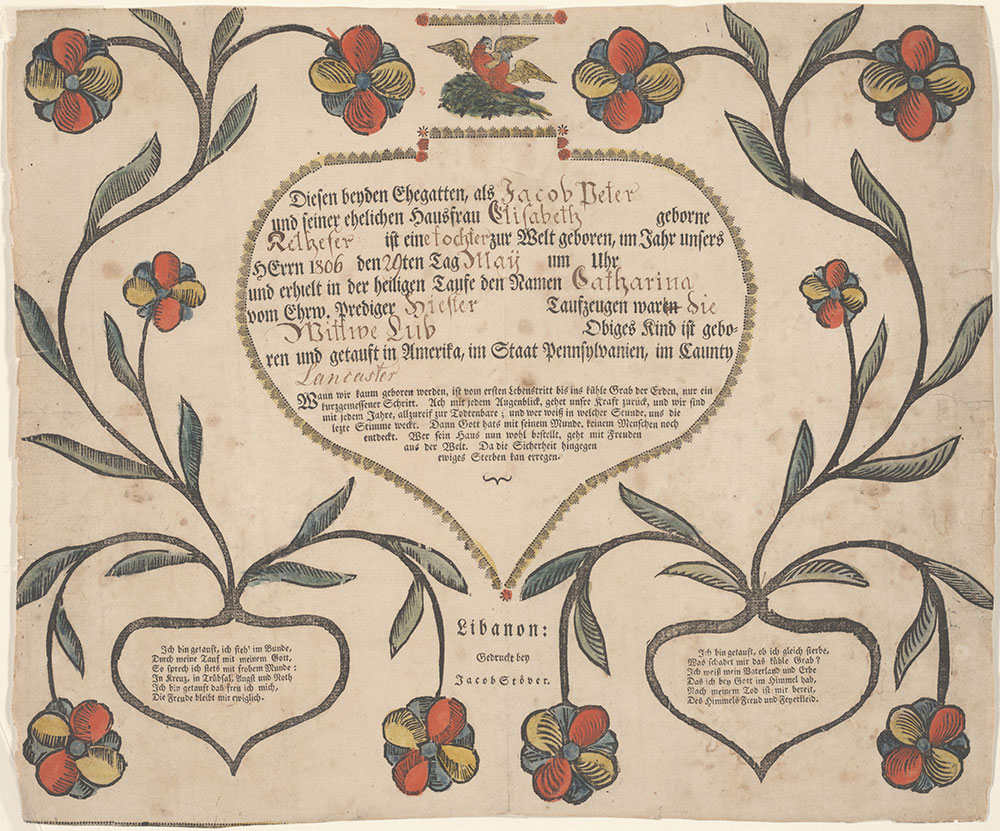 Diesen beyden Ehegatten, als Jacob Peter
und seiner ehelichen Hausfrau Elisabeth geborne
Kelkefer ist eine tochter zur Welt geboren, im Jahr unsers
HErrn 1806 den 29ten Tag Maÿ um Uhr
und erhielt in der heiligen Taufe den Namen Catharina
vom Ehrw. Prediger Hiester Taufzeugen waren die
Wittwe Lub Obiges Kind ist gebo-
ren und getauft in Amerika, im Staat Pennsylvanien, im Caunty
Lancaster
Wann wir kaum geboren werden, ist vom ersten Lebenstritt bis ins kühle Grab der Erden, nur ein
kurzgemessener Schritt. Ach mit jedem Augenblick, gehet unsre Kraft zurück, und wir sind
mit jedem Jahre, allzureif zur Todtenbare; und wer weiß in welcher Stunde, uns die
lezte Stimme weckt. Dann Gott hats mit seinem Munde, keinem Menschen noch
entdeckt. Wer sein Haus nun wohl bestellt, geht mit Freuden
aus der Welt. Da die Sicherheit hingegen
ewiges Sterben kan erregen.
Ich bin getauft, ich steh' im Bunde,
Durch meine Tauf mit meinem Gott,
So sprech ich stets mit frohem Munde:
In Kreuz, in Trübsal, Angst und Noth
Ich bin getauft das freu ich mich,
Die Freude bleibt mir ewiglich.
Libanon:
Gedruckt bey
Jacob Stöver.
Ich bin getauft, ob ich gleich sterbe,
Was schadet mir das kühle Grab?
Ich weiß mein Vaterland und Erbe
Das ich bey Gott im Himmel hab,
Nach meinem Tod ist mir bereit,
Des Himmels Freud und Feyerkleid.